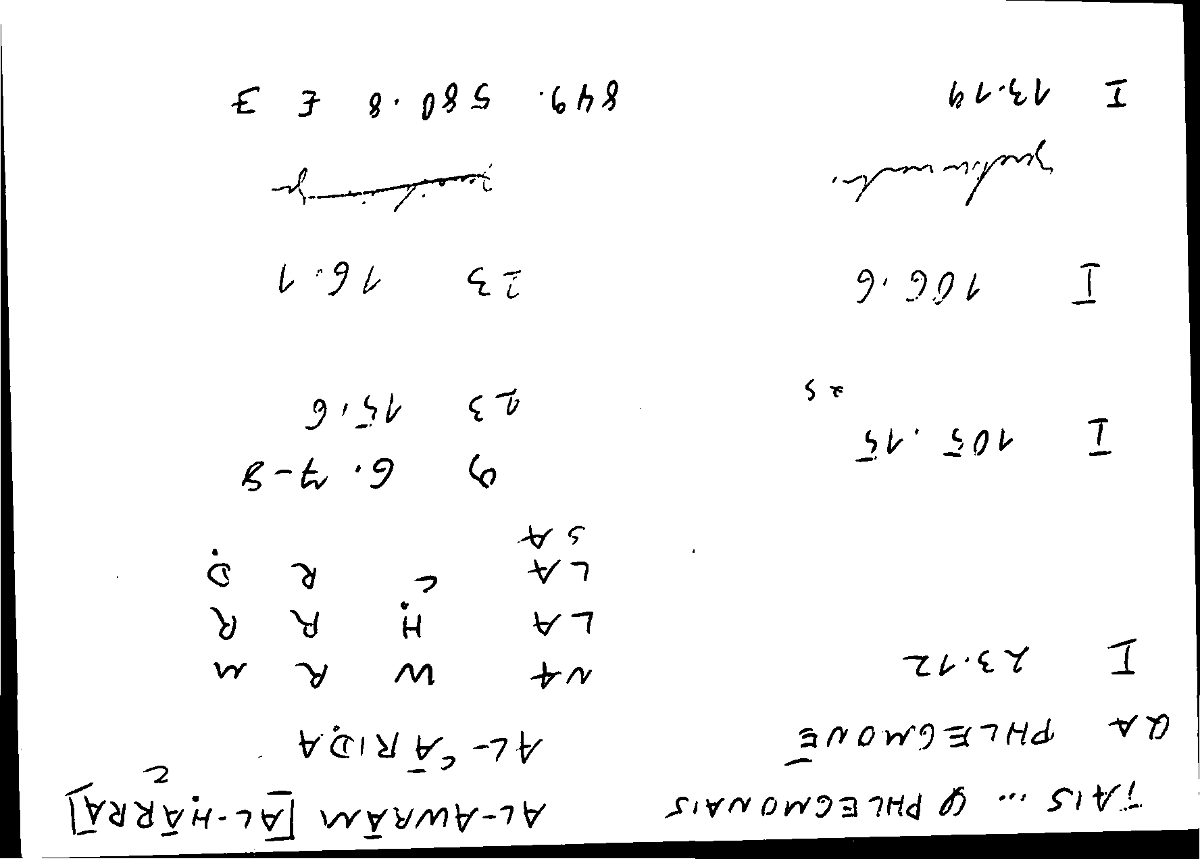 TAIS ... Q PHLEGMONAIS AL-AWRĀM [AL-ḤĀRRA]
QA PHLEGMONĒ AL-ʿĀRIḌA
I 23.12 NA W R M
LA Ḥ R R
LA C R Ḍ
SA
9 6.7-8
I 105.15 23 15.6
25
I 106.6 23 16.1
I 13.14 849. 580.8 E 3